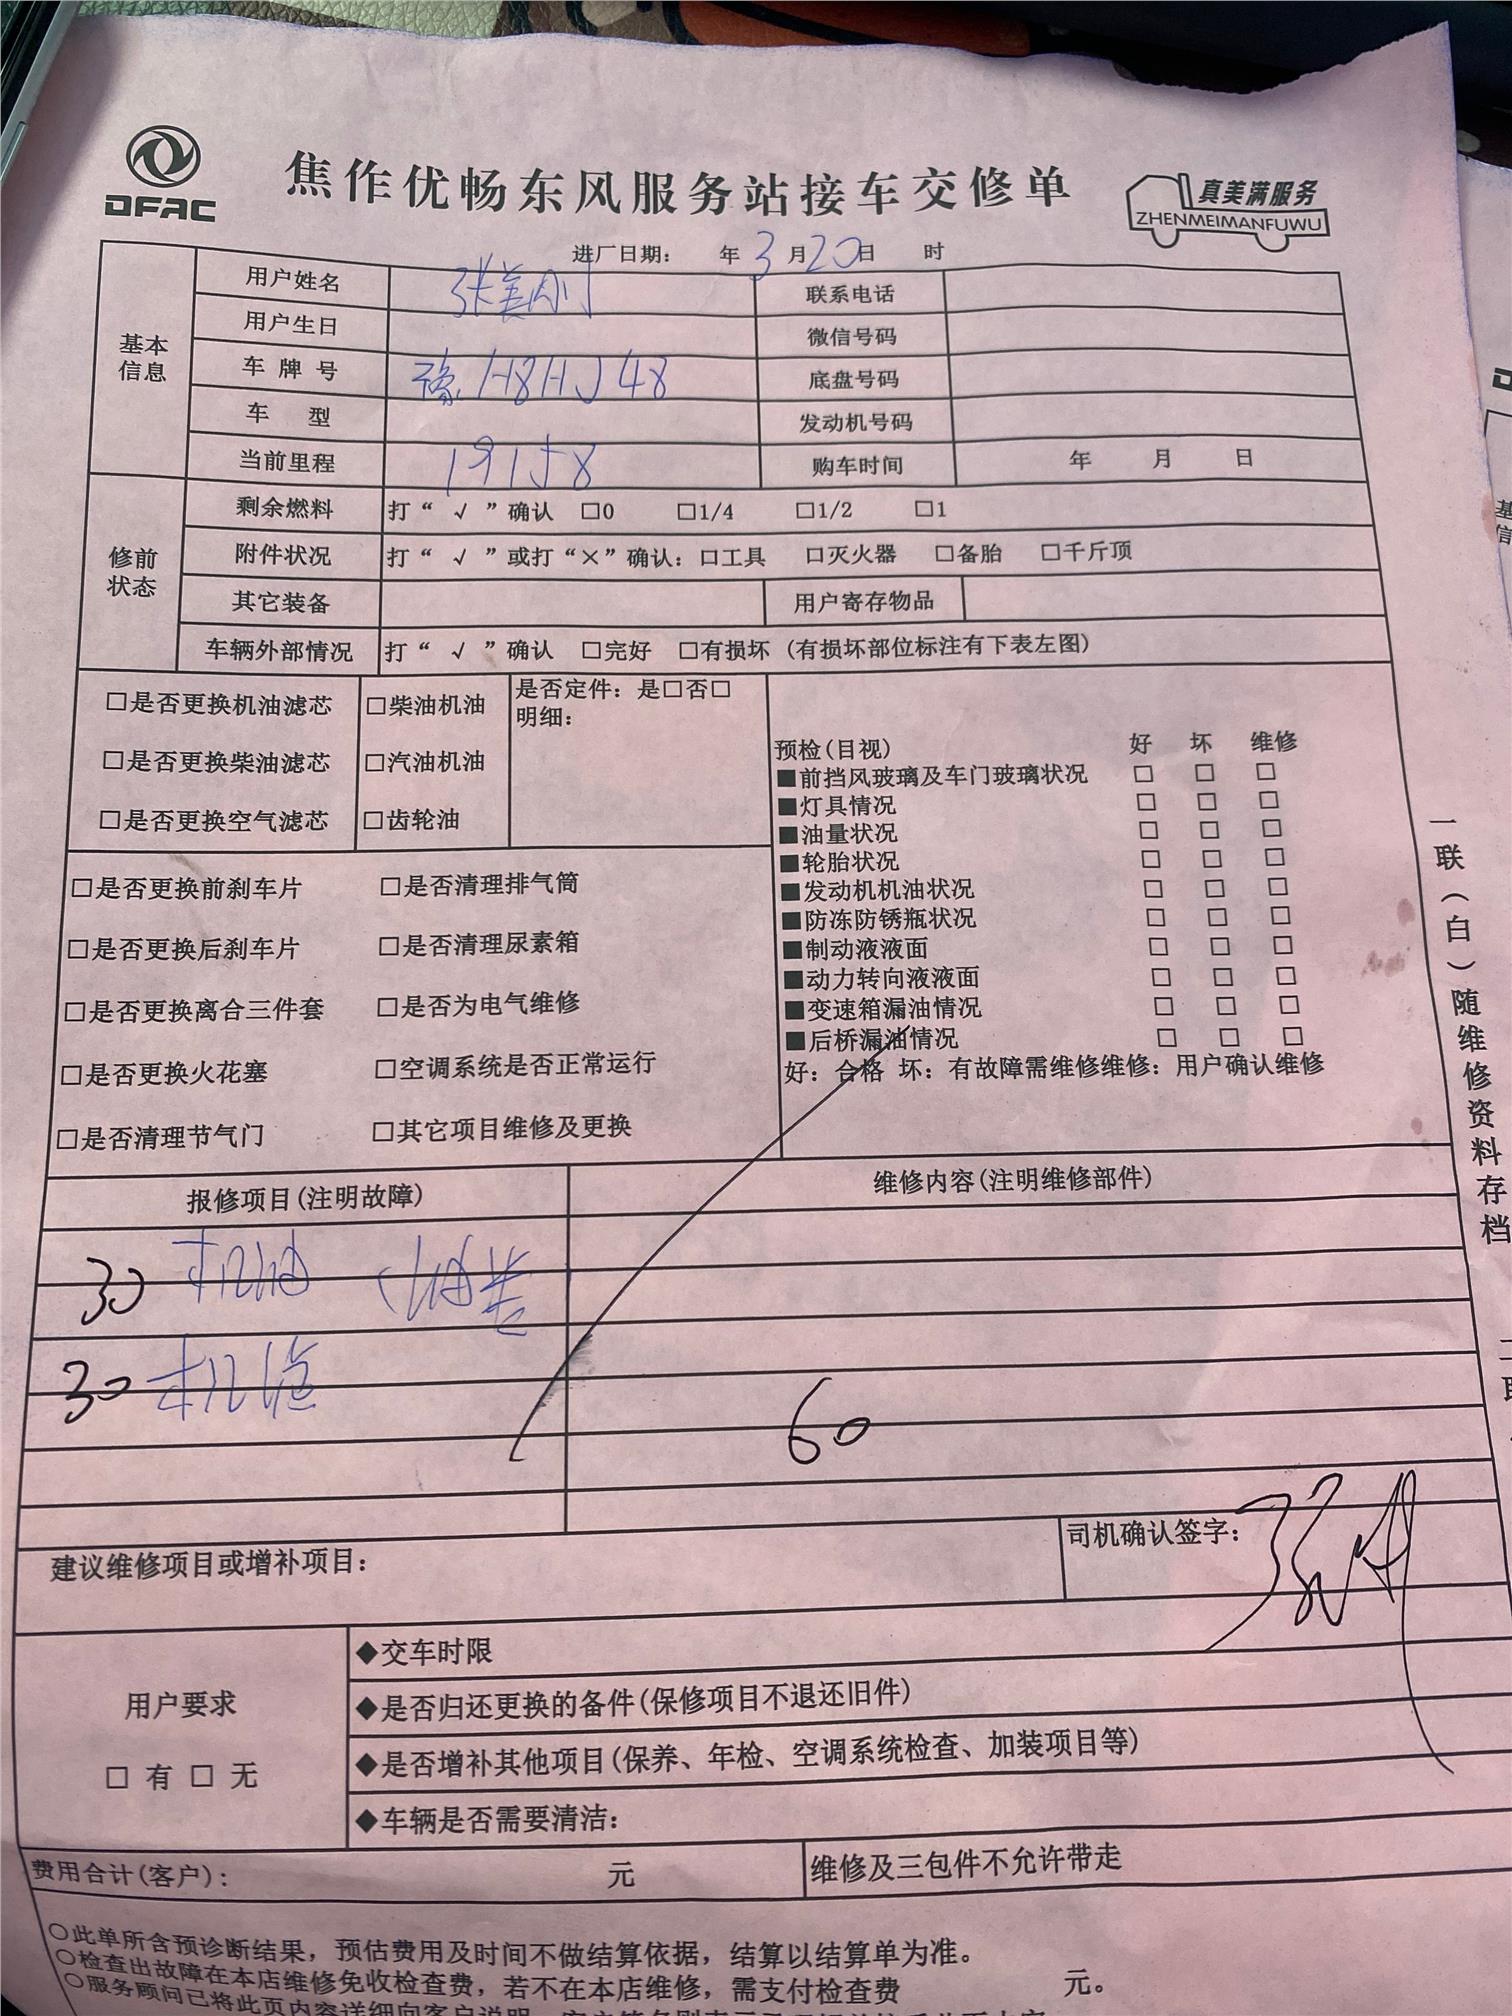 DFAC
焦作优畅东风服务站接车交修单
真美满服务
ZHENMEIMANFUWU
进厂日期: 年 3 月 20 日 时
基本信息
用户姓名 张美刚 联系电话
用户生日 微信号码
车牌号 豫H8HJ48 底盘号码
车型 发动机号码
当前里程 19158 购车时间 年 月 日
修前状态
剩余燃料 打“√”确认 □0 □1/4 □1/2 □1
附件状况 打“√”或打“×”确认: □工具 □灭火器 □备胎 □千斤顶
其它装备 用户寄存物品
车辆外部情况 打“√”确认 □完好 □有损坏 (有损坏部位标注有下表左图)
□是否更换机油滤芯 □柴油机油 是否定件: 是□否□
明细:
□是否更换柴油滤芯 □汽油机油
□是否更换空气滤芯 □齿轮油
预检(目视) 好 坏 维修
■前挡风玻璃及车门玻璃状况 □ □ □
■灯具情况 □ □ □
■油量状况 □ □ □
■轮胎状况 □ □ □
■发动机机油状况 □ □ □
■防冻防锈瓶状况 □ □ □
■制动液液面 □ □ □
■动力转向液液面 □ □ □
■变速箱漏油情况 □ □ □
■后桥漏油情况 □ □ □
好: 合格 坏: 有故障需维修维修: 用户确认维修
□是否更换前刹车片 □是否清理排气筒
□是否更换后刹车片 □是否清理尿素箱
□是否更换离合三件套 □是否为电气维修
□是否更换火花塞 □空调系统是否正常运行
□是否清理节气门 □其它项目维修及更换
报修项目(注明故障) 维修内容(注明维修部件)
30 机油
30 机滤
60
建议维修项目或增补项目: 司机确认签字:
用户要求
□ 有 □ 无
◆交车时限
◆是否归还更换的备件(保修项目不退还旧件)
◆是否增补其他项目(保养、年检、空调系统检查、加装项目等)
◆车辆是否需要清洁:
费用合计(客户): 元 维修及三包件不允许带走
○此单所含预诊断结果，预估费用及时间不做结算依据，结算以结算单为准。
○检查出故障在本店维修免收检查费，若不在本店维修，需支付检查费 元。
○服务顾问已将此页内容详细向客户说明
一联(白)随维修资料存档